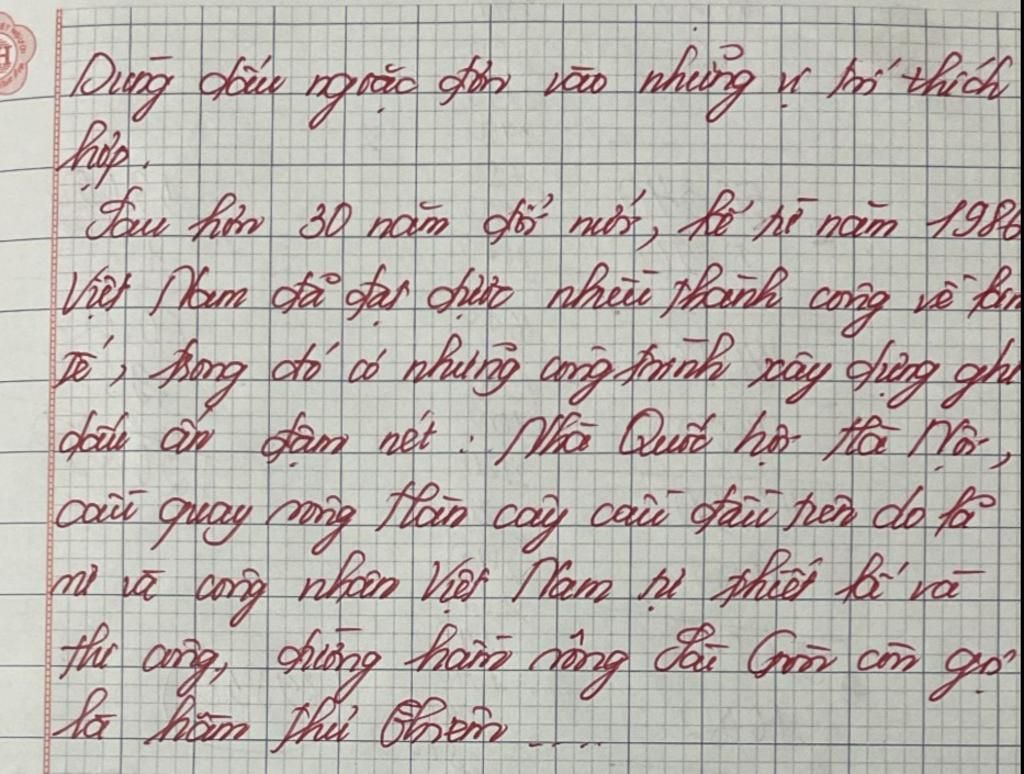 Dùng dấu ngoặc đơn vào những vị trí thích
hợp.
Sau hơn 30 năm đổi mới, kể từ năm 1986
Việt Nam đã đạt được nhiều thành công về kin
tế, trong đó có những công trình xây dựng ghi
dấu ấn đậm nét : Nhà Quốc hội Hà Nội,
cầu quay sông Hàn cây cầu đầu tiên do kĩ
sư và công nhân Việt Nam tự thiết kế và
thi công, đường hầm sông Sài Gòn còn gọi
là hầm Thủ Thiêm .....